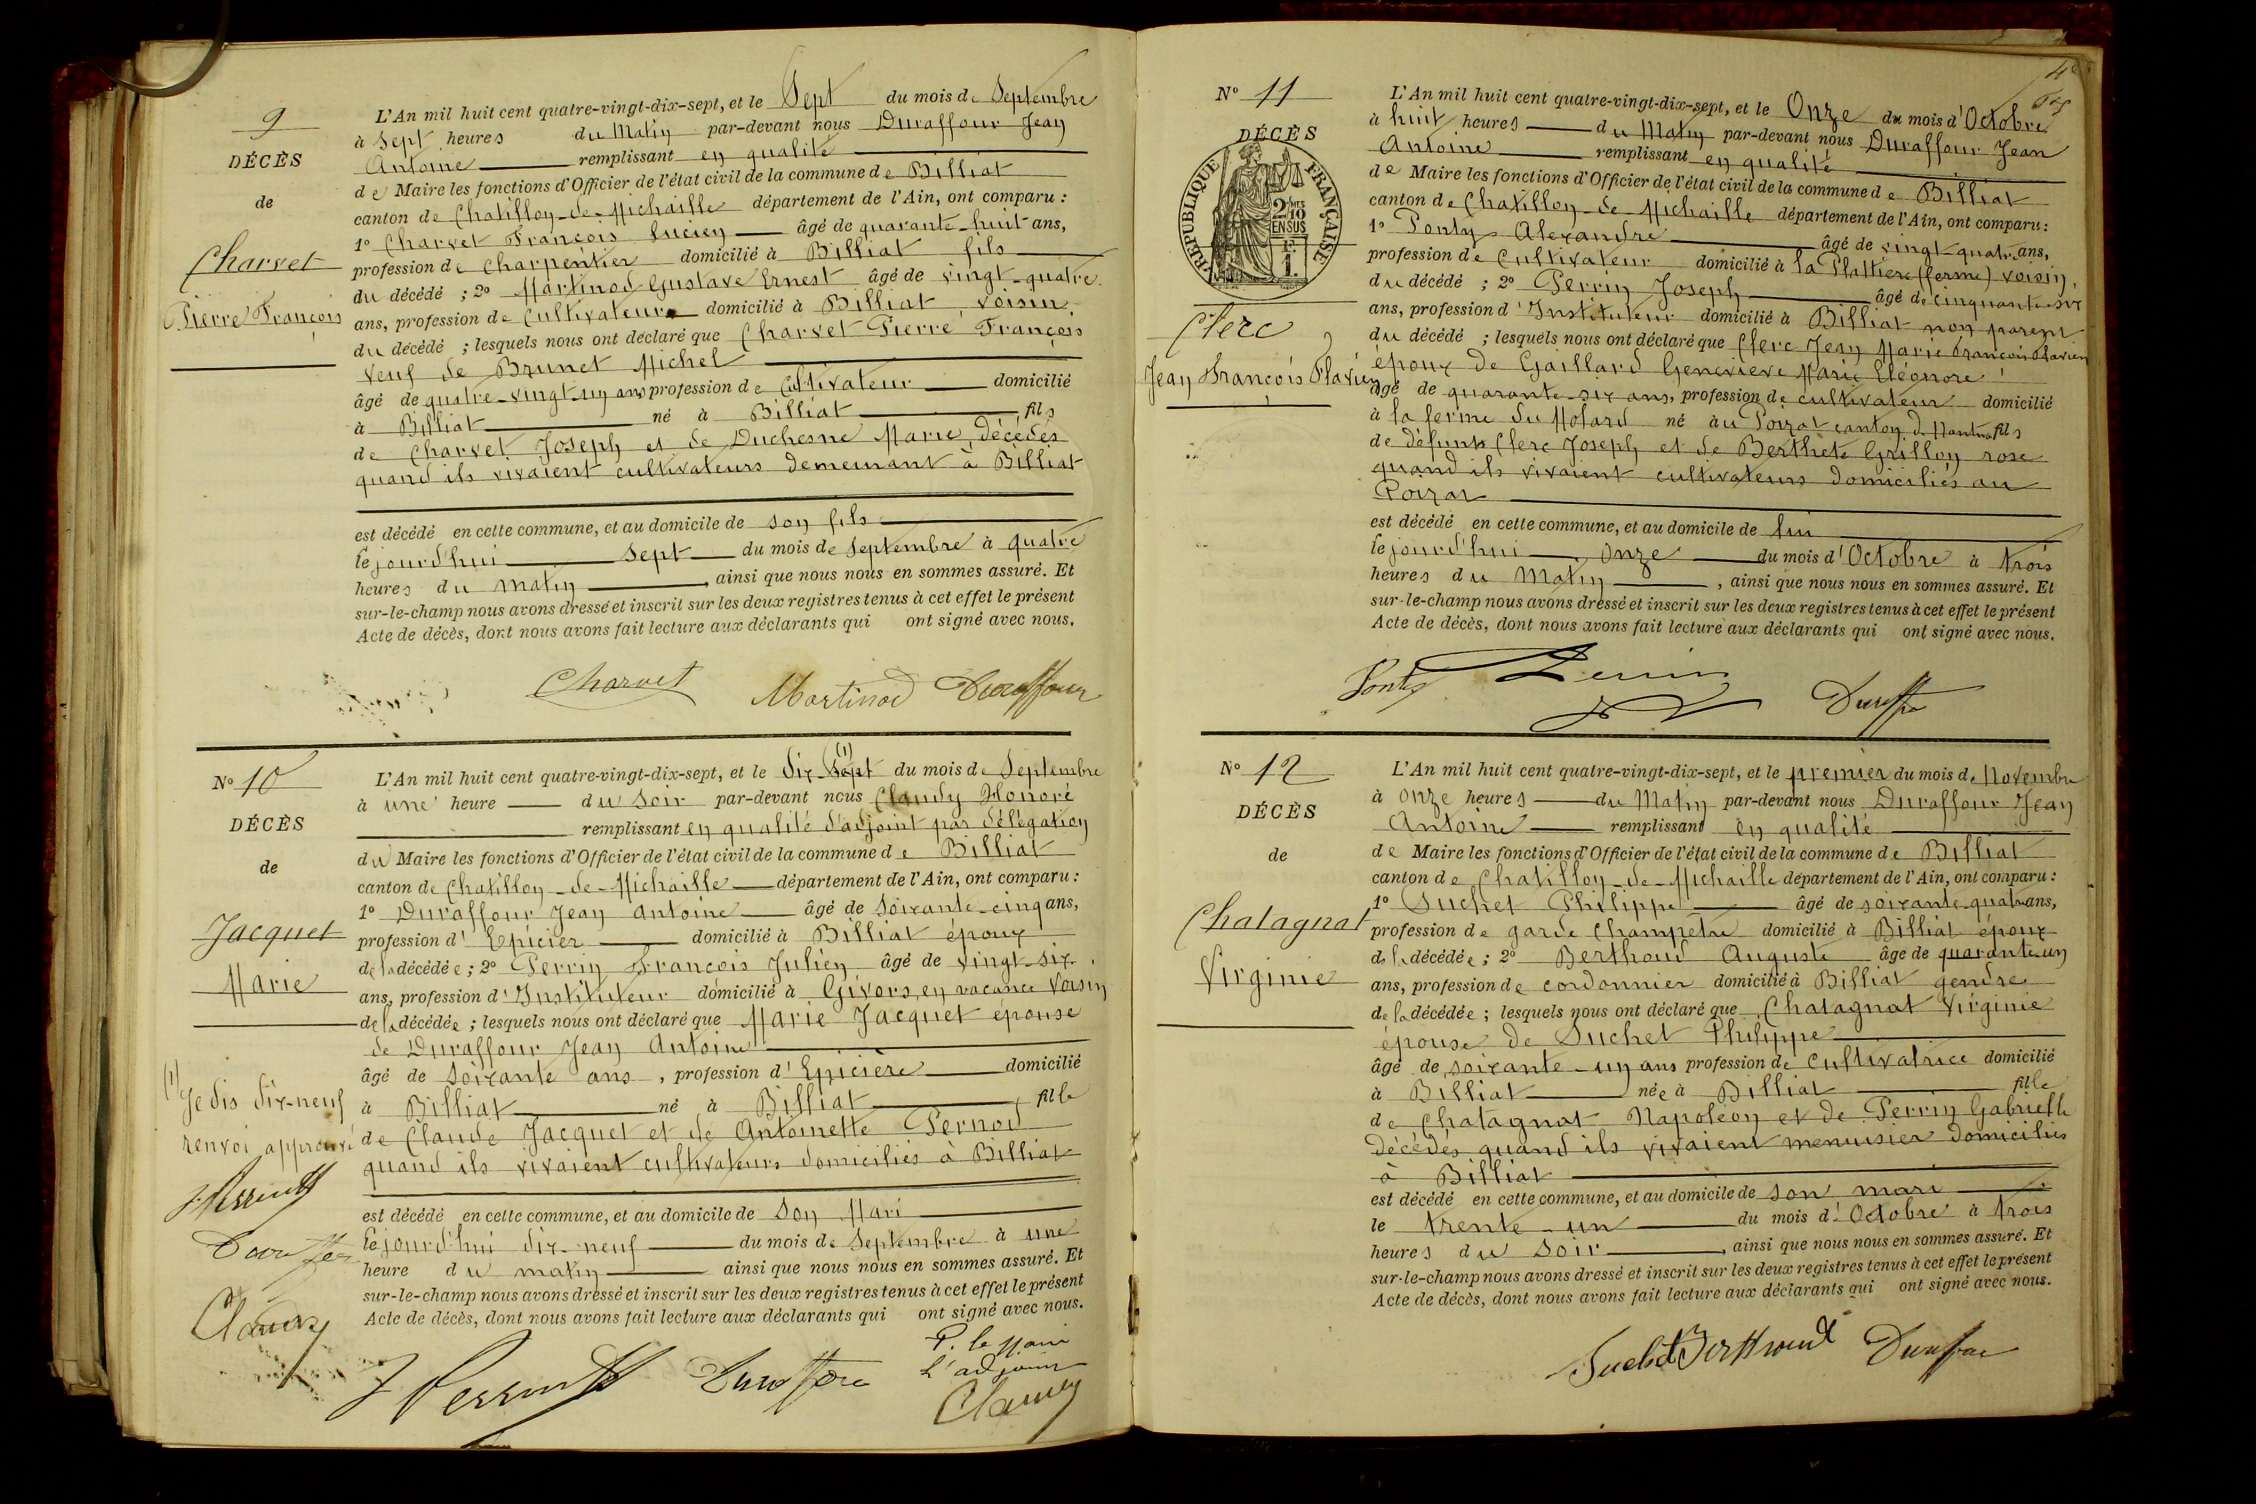 9
DÉCÈS
de
Charvet
Pierre François
L'An mil huit cent quatre-vingt-dix-sept, et le Sept du mois de Septembre
à Sept heures du Matin par-devant nous Duraffour Jean
Antoine remplissant en qualité
de Maire les fonctions d'Officier de l'état civil de la commune de Billiat
canton de Chatillon-de-Michaille département de l'Ain, ont comparu :
1° Charvet François Lucien âgé de quarante-huit ans,
profession de Charpentier domicilié à Billiat fils
du décédé ; 2° Martinod Gustave Ernest âgé de vingt-quatre
ans, profession de Cultivateur domicilié à Billiat, voisin,
du décédé ; lesquels nous ont déclaré que Charvet Pierre, François
veuf de Brunet Michel
âgé de quatre-vingt-un ans profession de Cultivateur domicilié
à Billiat né à Billiat fils
de Charvet Joseph et de Duchesne Marie, décédés
quand ils vivaient cultivateurs demeurant à Billiat
est décédé en cette commune, et au domicile de son fils
le jourd'hui Sept du mois de Septembre à quatre
heures du matin, ainsi que nous nous en sommes assuré. Et
sur-le-champ nous avons dressé et inscrit sur les deux registres tenus à cet effet le présent
Acte de décès, dont nous avons fait lecture aux déclarants qui ont signé avec nous.
Charvet Martinod Duraffour
N° 10
DÉCÈS
de
Jacquet
Marie
(1) Je dis dix-neuf
renvoi approuvé
J Perrin
Duraffour
Claudy
L'An mil huit cent quatre-vingt-dix-sept, et le dix-sept (1) du mois de Septembre
à une heure du soir par-devant nous Claudy Honoré
remplissant en qualité d'adjoint par délégation
du Maire les fonctions d'Officier de l'état civil de la commune de Billiat
canton de Chatillon-de-Michaille département de l'Ain, ont comparu :
1° Duraffour Jean Antoine âgé de Soixante-cinq ans,
profession d'Epicier domicilié à Billiat époux
de la décédée ; 2° Perrin François Julien âgé de vingt-six
ans, profession d'Instituteur domicilié à Givors, en vacance voisin
de la décédée ; lesquels nous ont déclaré que Marie Jacquet épouse
de Duraffour Jean Antoine
âgé de Soixante ans, profession d'Epicière domicilié
à Billiat né à Billiat fille
de Claude Jacquet et de Antoinette Pernod
quand ils vivaient cultivateurs domiciliés à Billiat
est décédé en cette commune, et au domicile de Son Mari
le jourd'hui dix-neuf du mois de Septembre à une
heure du matin ainsi que nous nous en sommes assuré. Et
sur-le-champ nous avons dressé et inscrit sur les deux registres tenus à cet effet le présent
Acte de décès, dont nous avons fait lecture aux déclarants qui ont signé avec nous.
P. le Maire
L'adjoint
J Perrin Duraffour Claudy
N° 11
DÉCÈS
RÉPUBLIQUE FRANÇAISE
2/10 EN SUS
1 F.
Clerc
Jean François Flavien
L'An mil huit cent quatre-vingt-dix-sept, et le Onze du mois d'Octobre
à huit heures du Matin par-devant nous Duraffour Jean
Antoine remplissant en qualité
de Maire les fonctions d'Officier de l'état civil de la commune de Billiat
canton de Chatillon-de-Michaille département de l'Ain, ont comparu :
1° Ponty Alexandre âgé de vingt-quatre ans,
profession de Cultivateur domicilié à la Plattière (ferme) voisin,
du décédé ; 2° Perrin Joseph âgé de cinquante-six
ans, profession d'Instituteur domicilié à Billiat non parent
du décédé ; lesquels nous ont déclaré que Clerc Jean Marie François Flavien
époux de Gaillard Geneviève Marie Eléonore
âgé de quarante-six ans, profession de cultivateur domicilié
à la ferme du Molard né au Poizat canton de Nantua fils
de défunts Clerc Joseph et de Berthet Grillon rose
quand ils vivaient cultivateurs domiciliés au
Poizat
est décédé en cette commune, et au domicile de lui
le jourd'hui onze du mois d'Octobre à trois
heures du Matin, ainsi que nous nous en sommes assuré. Et
sur-le-champ nous avons dressé et inscrit sur les deux registres tenus à cet effet le présent
Acte de décès, dont nous avons fait lecture aux déclarants qui ont signé avec nous.
Ponty Perrin Duraffour
N° 12
DÉCÈS
de
Chatagnat
Virginie
L'An mil huit cent quatre-vingt-dix-sept, et le premier du mois de Novembre
à onze heures du Matin par-devant nous Duraffour Jean
Antoine remplissant en qualité
de Maire les fonctions d'Officier de l'état civil de la commune de Billiat
canton de Chatillon-de-Michaille département de l'Ain, ont comparu :
1° Suchet Philippe âgé de soixante-quatre ans,
profession de garde Champêtre domicilié à Billiat époux
de la décédée ; 2° Berthoud Auguste âgé de quarante-un
ans, profession de cordonnier domicilié à Billiat gendre
de la décédée ; lesquels nous ont déclaré que Chatagnat Virginie
épouse de Suchet Philippe
âgé de soixante-un ans profession de Cultivatrice domicilié
à Billiat née à Billiat fille
de Chatagnat Napoléon et de Perrin Gabrielle
décédés quand ils vivaient menuisier domiciliés
à Billiat
est décédé en cette commune, et au domicile de son mari
le trente-un du mois d'Octobre à trois
heures du soir, ainsi que nous nous en sommes assuré. Et
sur-le-champ nous avons dressé et inscrit sur les deux registres tenus à cet effet le présent
Acte de décès, dont nous avons fait lecture aux déclarants qui ont signé avec nous.
Suchet Berthoud Duraffour